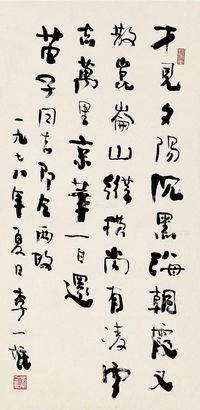 才見夕陽沉黑海朝霞又
散崑崙山縱橫尚有凌雲
志萬里京華一日還
苗子同志即乞政
一九七八年夏日李一氓